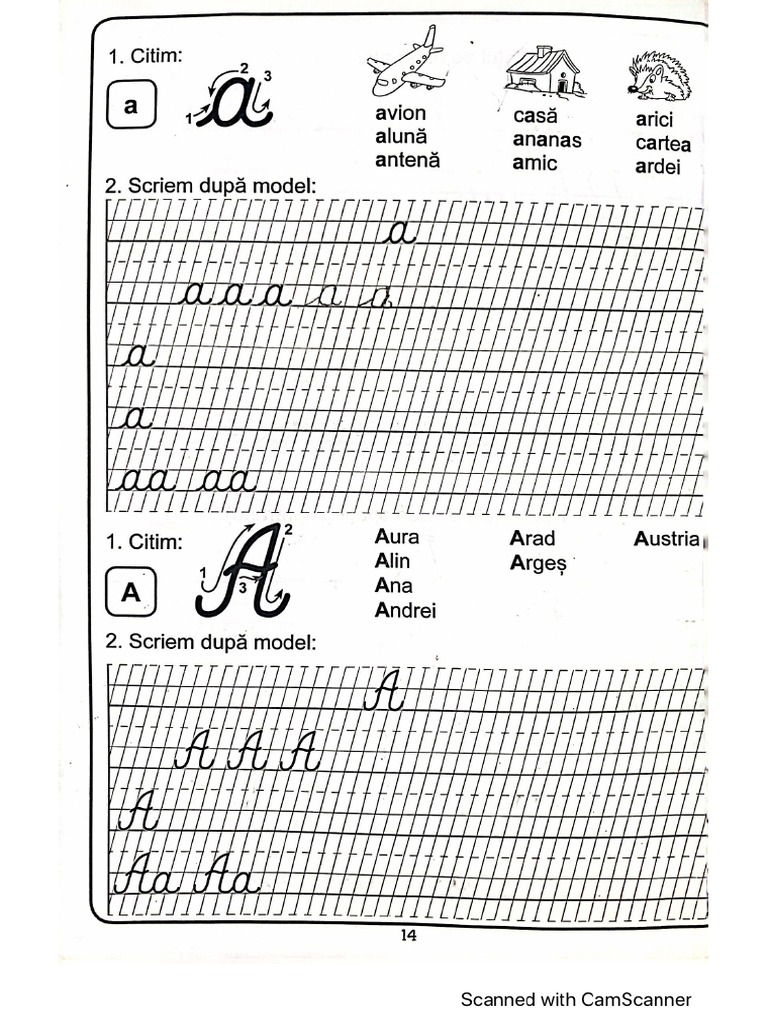 1. Citim:
a
1 2 3
a
avion casă arici
alună ananas cartea
antenă amic ardei
2. Scriem după model:
a
a a a a a
a
a
aa aa
1. Citim:
A
1 2 3
A
Aura Arad Austria
Alin Argeș
Ana
Andrei
2. Scriem după model:
A
A A A
A
Aa Aa
14
Scanned with CamScanner